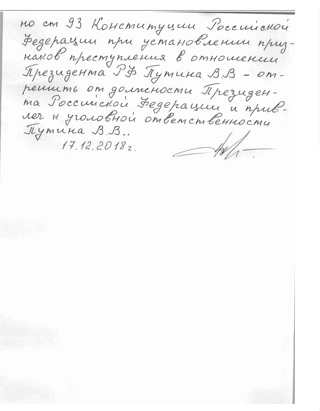 но ст 93 Конституции Российской
Федерации при установлении приз-
наков преступления в отношении
Президента РФ Путина В.В - от-
решить от должности Президен-
та Российской Федерации и прив-
леч к уголовной ответственности
Путина В.В..
17.12.2018г.